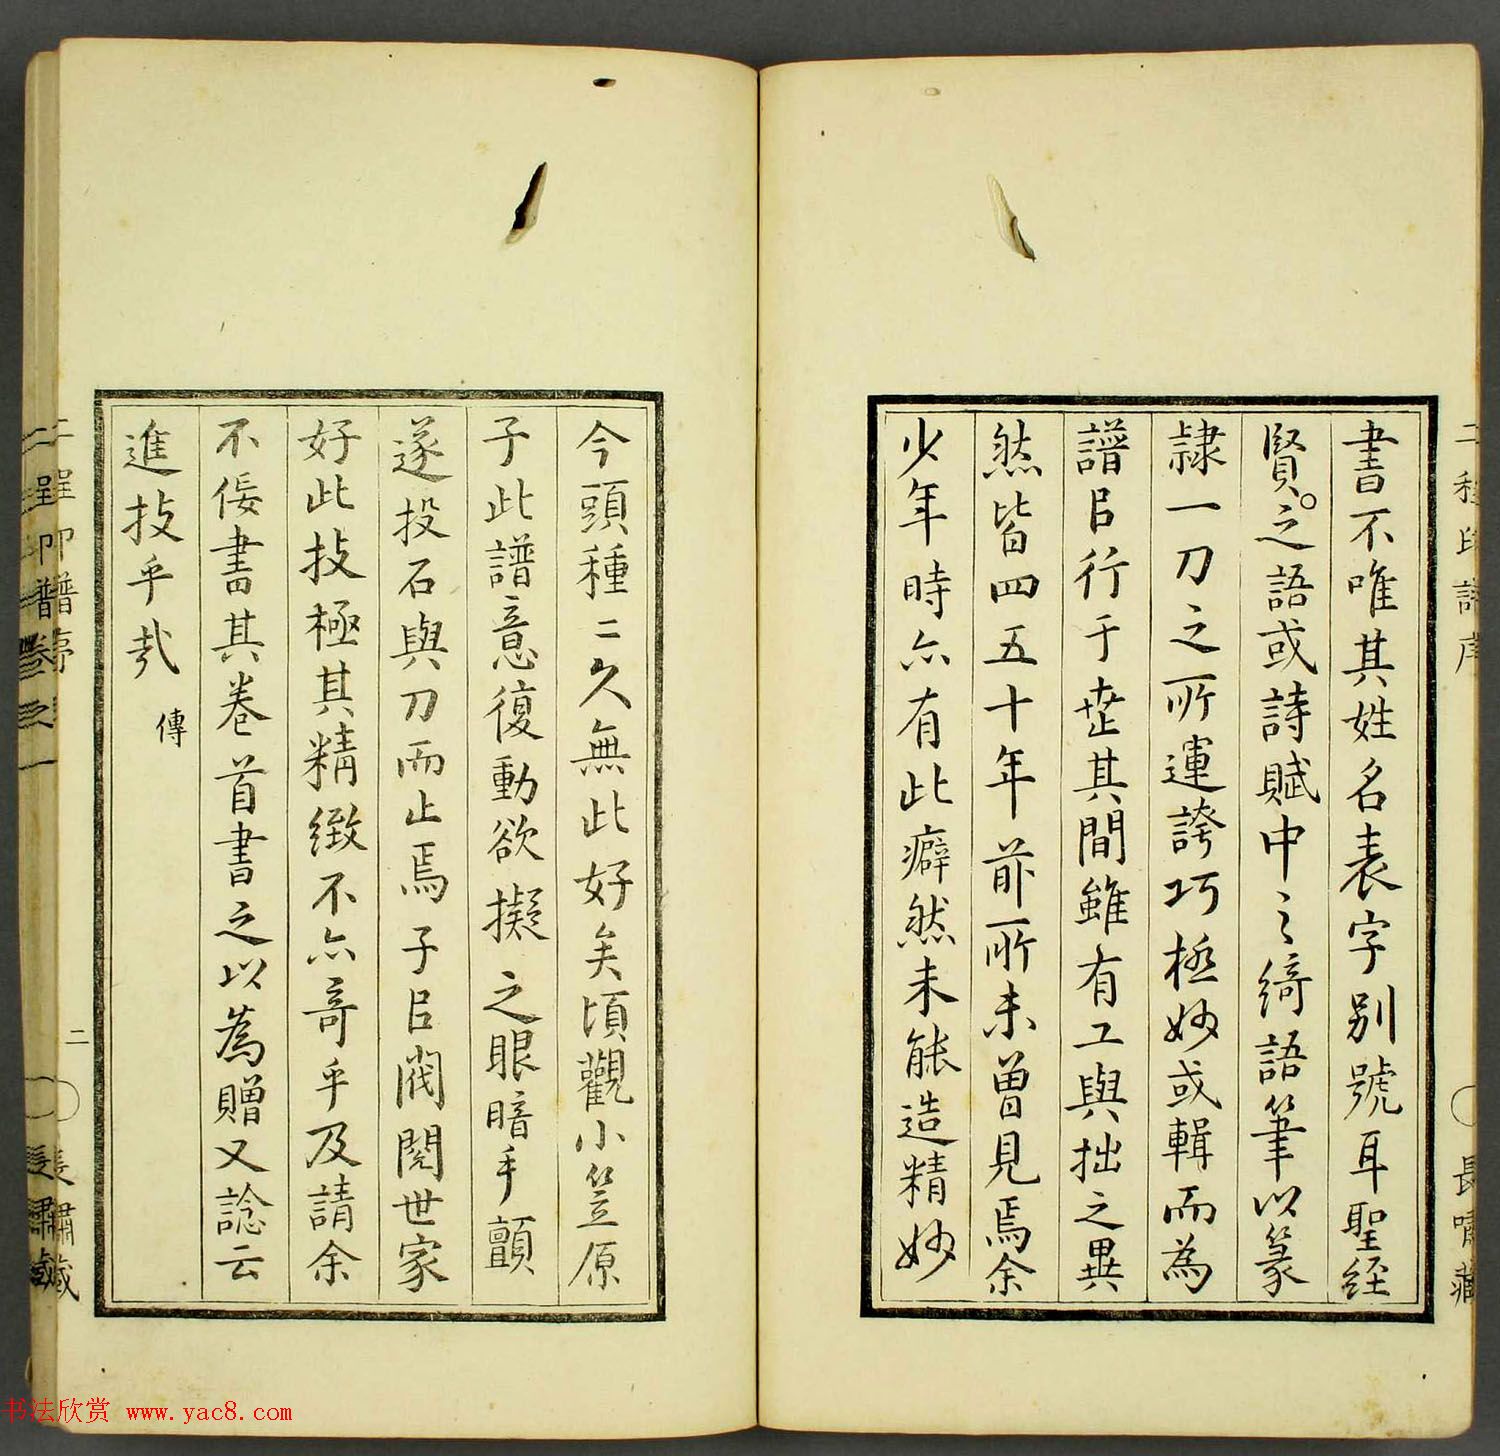 書不唯其姓名表字別號耳聖經
賢。之語或詩賦中之綺語筆以篆
隷一刀之所運誇巧極妙或輯而為
譜㠯行于世其間雖有工與拙之異
然皆四五十年前所未曽見焉余
少年時亦有此癖然未能造精妙
今頭種〻久無此好矣頃觀小笠原
子此譜意復動欲擬之眼暗手顫
遂投石與刀而止焉子㠯閥閲世家
好此技極其精緻不亦奇乎及請余
不佞書其卷首書之以為贈又諗云
進技乎哉
傳
二程印譜序
長嘯藏
二程印譜序
二
長嘯藏
二程印譜卷之一
长嘯藏
书法欣赏 www.yac8.com